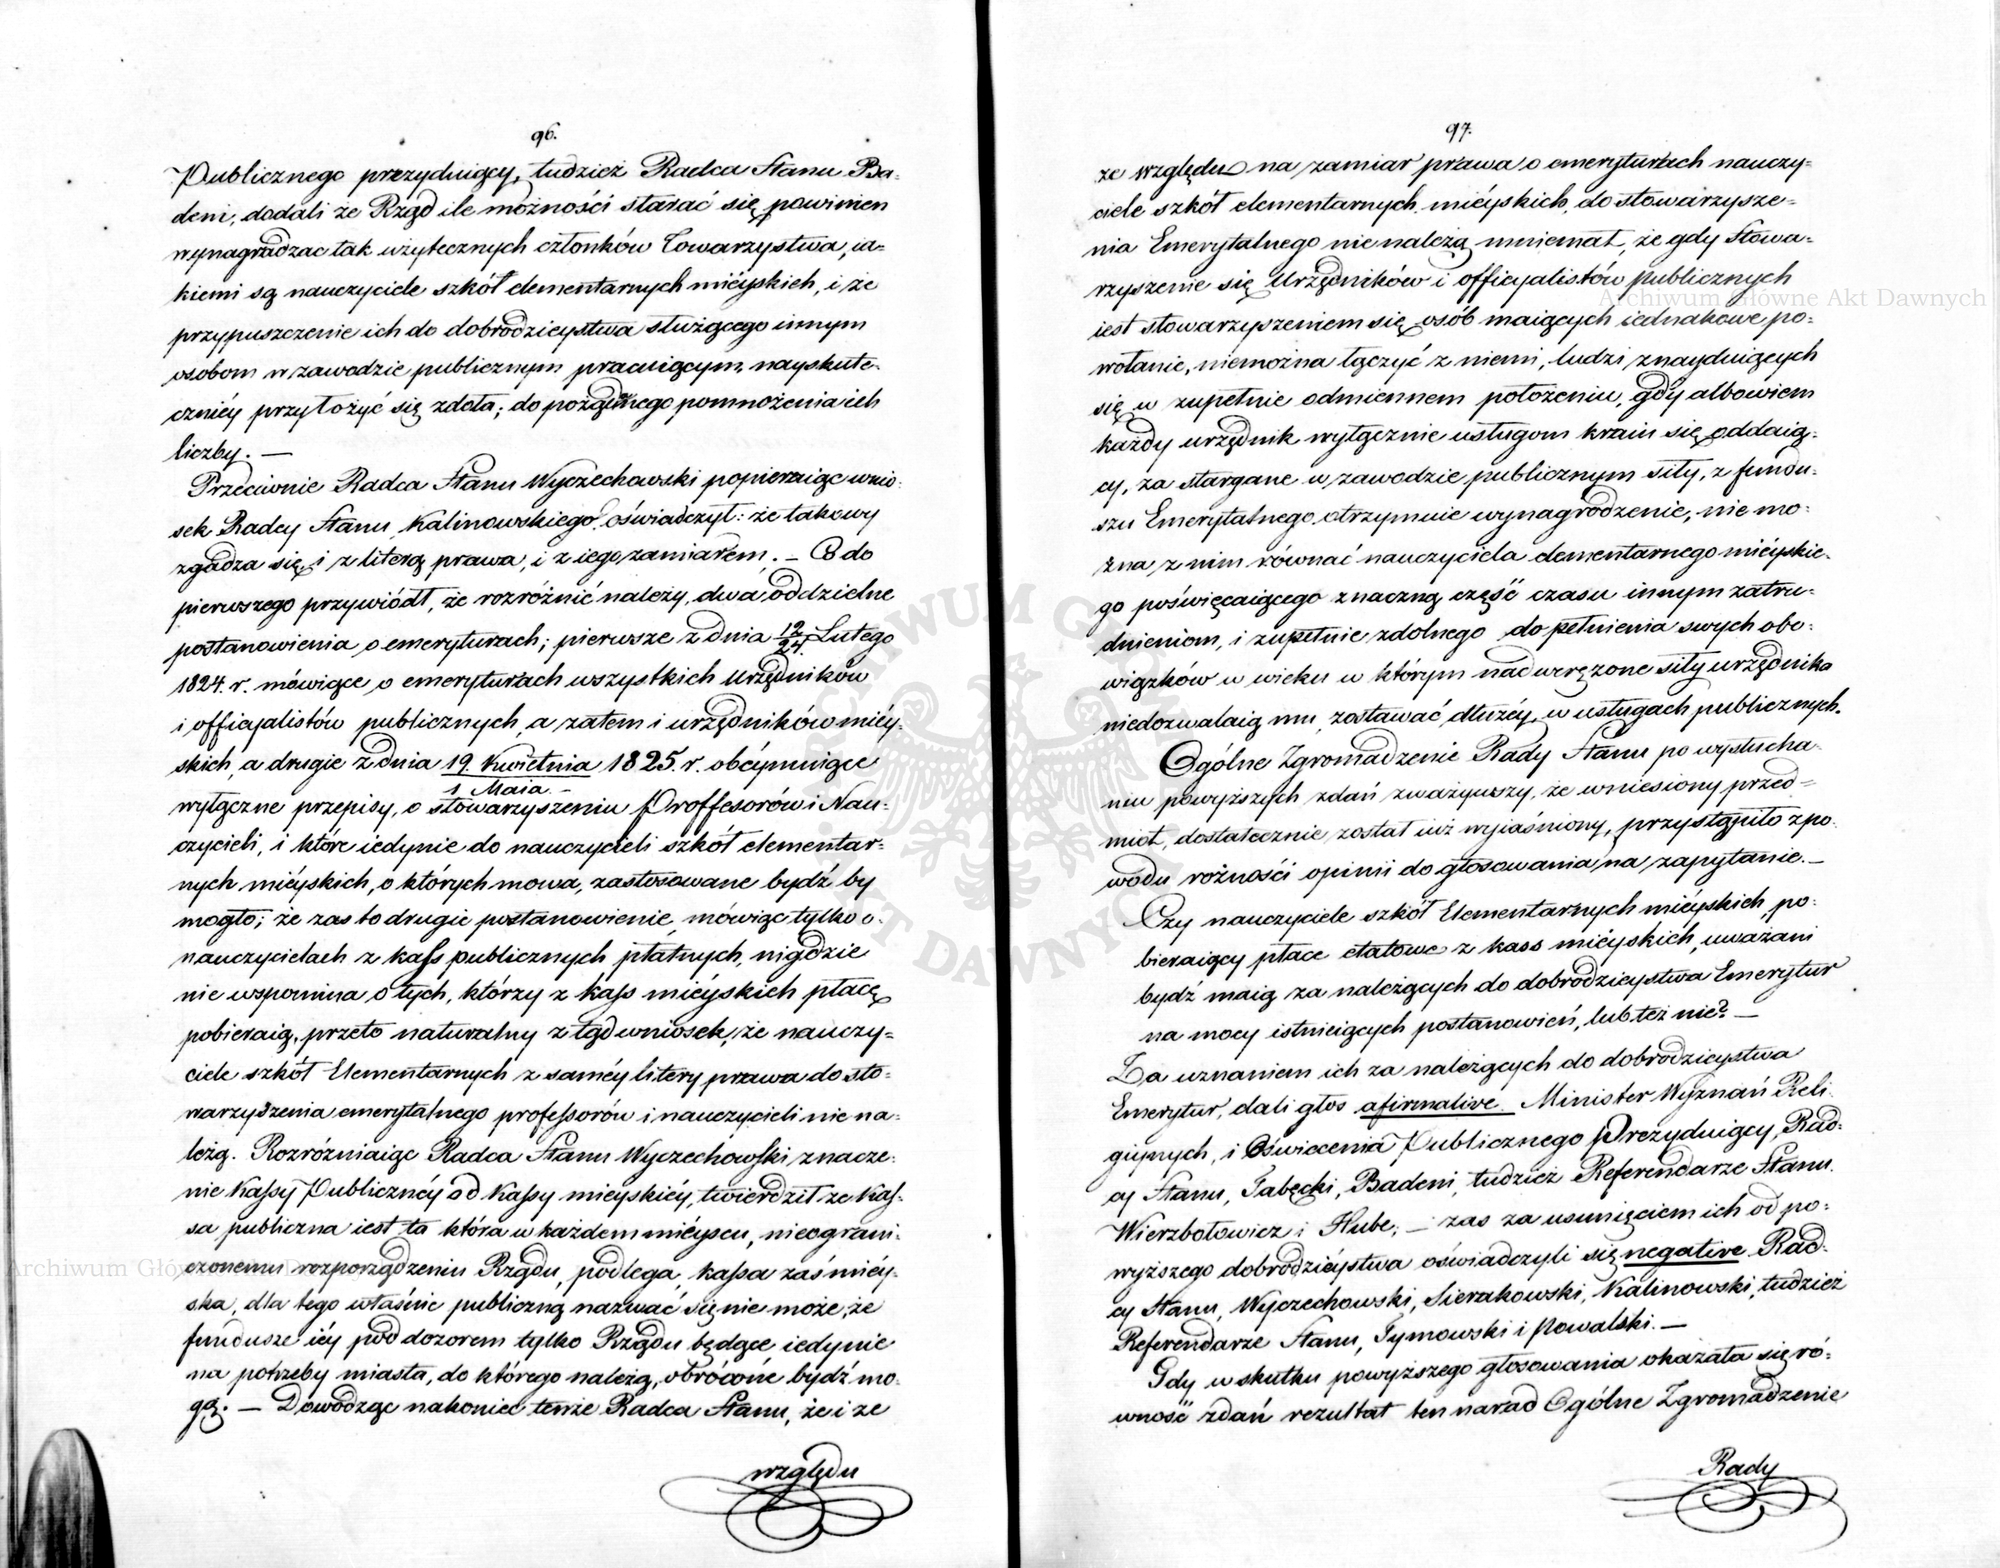 96.
Publicznego prezyduiący, tudzież Radca Stanu Ba-
deni, dodali że Rząd ile możności starać się powinien
wynagradzac tak użytecznych członków Towarzystwa, ia-
kiemi są nauczyciele szkół elementarnych mieyskich, i że
przypuszczenie ich do dobrodzieystwa służącego innym
osobom w zawodzie publicznym pracuiącym, nayskute-
czniéy przyłożyć się zdoła; do pożądanego pomnożenia ich
liczby. —
Przeciwnie Radca Stanu Wyczechowski popieraiąc wnio-
sek Radcy Stanu Kalinowskiego, oświadczył: że takowy
zgadza się i z literą prawa, i z iego zamiarem. — Co do
pierwszego przywiódł, że rozróżnić należy, dwa oddzielne
postanowienia o emeryturach; pierwsze z dnia 12/24. Lutego
1824. r. mówiące o emeryturach wszystkich Urzędników
i officyalistów publicznych, a zatem i urzędników miéy-
skich, a drugie z dnia 19. Kwietnia 1825. r. obéymuiące
1 Maia. —
wyłączne przepisy, o stowarzyszeniu Proffesorów i Nau-
czycieli, i które iedynie do nauczycieli szkół elementar-
nych miéyskich, o których mowa, zastosowane bydź by
mogło; że zas to drugie postanowienie, mówiąc tylko o
nauczycielach z kass publicznych płatnych, nigdzie
nie wspomina o tych, którzy z kass miéyskich płacę
pobieraią, przeto naturalny z tąd wniosek, że nauczy-
ciele szkół Elementarnych z saméy litery prawa do sto-
warzyszenia emerytalnego professorów i nauczycieli nie na-
leżą. Rozróżniaiąc Radca Stanu Wyczechowski znacze-
nie Kassy Publicznéy od Kassy mieyskiéy, twierdził ze Kas-
sa publiczna iest ta która w każdem miéyscu, nieograni-
czonemu rozporządzeniu Rządu, podlega, kassa zaś miéy-
ska, dla tego właśnie publiczną nazwać się nie może, że
fundusze iéy pod dozorem tylko Rządu będące iedynie
na potrzeby miasta, do którego należą, obrócone bydź mo-
gą. — Dowodząc nakoniec tenże Radca Stanu, że i ze
względu
97.
ze względu na zamiar prawa o emeryturach nauczy-
ciele szkół elementarnych miéyskich, do stowarzysze-
nia Emerytalnego nie należą mniemał, że gdy Stowa-
rzyszenie się Urzędników i officyalistów publicznych
iest stowarzyszeniem się osób maiących iednakowe po-
wołanie, niemożna łączyć z niemi, ludzi znayduiących
się w zupełnie odmiennem położeniu, gdy albowiem
każdy urzędnik wyłącznie usługom kraiu się oddaią-
cy, za stargane w zawodzie publicznym siły, z fundu-
szu Emerytalnego otrzymuie wynagrodzenie, nie mo-
żna z nim równać nauczyciela elementarnego miéyskie-
go poświęcaiącego znaczną część czasu innym zatru-
dnieniom, i zupełnie zdolnego do pełnienia swych obo-
wiązków w wieku w którym nadwerężone siły urzędnika
niedozwalaią mu zostawać dłużéy w usługach publicznych.
Ogólne Zgromadzenie Rady Stanu po wysłucha-
niu powyższych zdań zważywszy, że wniesiony przed-
miot, dostatecznie został iuż wyiaśniony, przystąpiło z po-
wodu rożności opinii do głosowania na zapytanie. —
Czy nauczyciele szkół Elementarnych miéyskich, po-
bieraiący płace etatowe z kass miéyskich, uważani
bydź maią za należących do dobrodzieystwa Emerytur
na mocy istnieiących postanowień, lub też nie? —
Za uznaniem ich za należących do dobrodzieystwa
Emerytur, dali głos afirmative. Minister Wyznań Reli-
giynych, i Oświecenia Publicznego Prezyduiący, Rad-
cy Stanu, Tabęcki, Badeni, tudzież Referendarze Stanu
Wierzbołowicz i Hube; — zas za usunięciem ich od po-
wyższego dobrodziéystwa oświadczyli się negative Rad-
cy Stanu, Wyczechowski, Sierakowski, Kalinowski, tudzież
Referendarze Stanu, Tymowski i Powalski. —
Gdy w skutku powyższego głosowania okazała się ró-
wność zdań rezultat ten narad Ogólne Zgromadzenie
Rady
Archiwum Główne Akt Dawnych
Archiwum Główne Akt Dawnych
ARCHIWUM GŁÓWNE AKT DAWNYCH